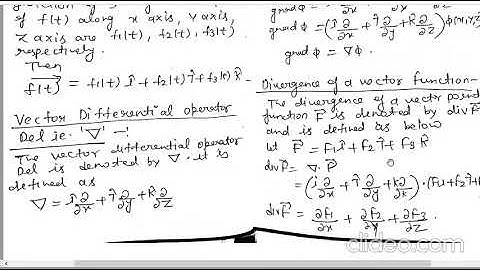 of f(t) along x axis, y axis,
z axis are f1(t), f2(t), f3(t)
respectively.
Then
f(t) = f1(t) î + f2(t) ĵ + f3(t) k̂
Vector Differential operator
Del ie. '∇' -:
The vector differential operator
Del is denoted by ∇. it is
defined as
∇ = î ∂/∂x + ĵ ∂/∂y + k̂ ∂/∂z
grad ϕ = (î ∂/∂x + ĵ ∂/∂y + k̂ ∂/∂z) ϕ(x,y,z)
grad ϕ = ∇ϕ.
Divergence of a vector function-
The divergence of a vector point
function F is denoted by div F
and is defined as below
let F = F1 î + f2 ĵ + f3 k̂
div F = ∇ . F
= (î ∂/∂x + ĵ ∂/∂y + k̂ ∂/∂k) . (F1 î + f2 ĵ +
div F = ∂f1/∂x + ∂f2/∂y + ∂f3/∂z .
clideo.com